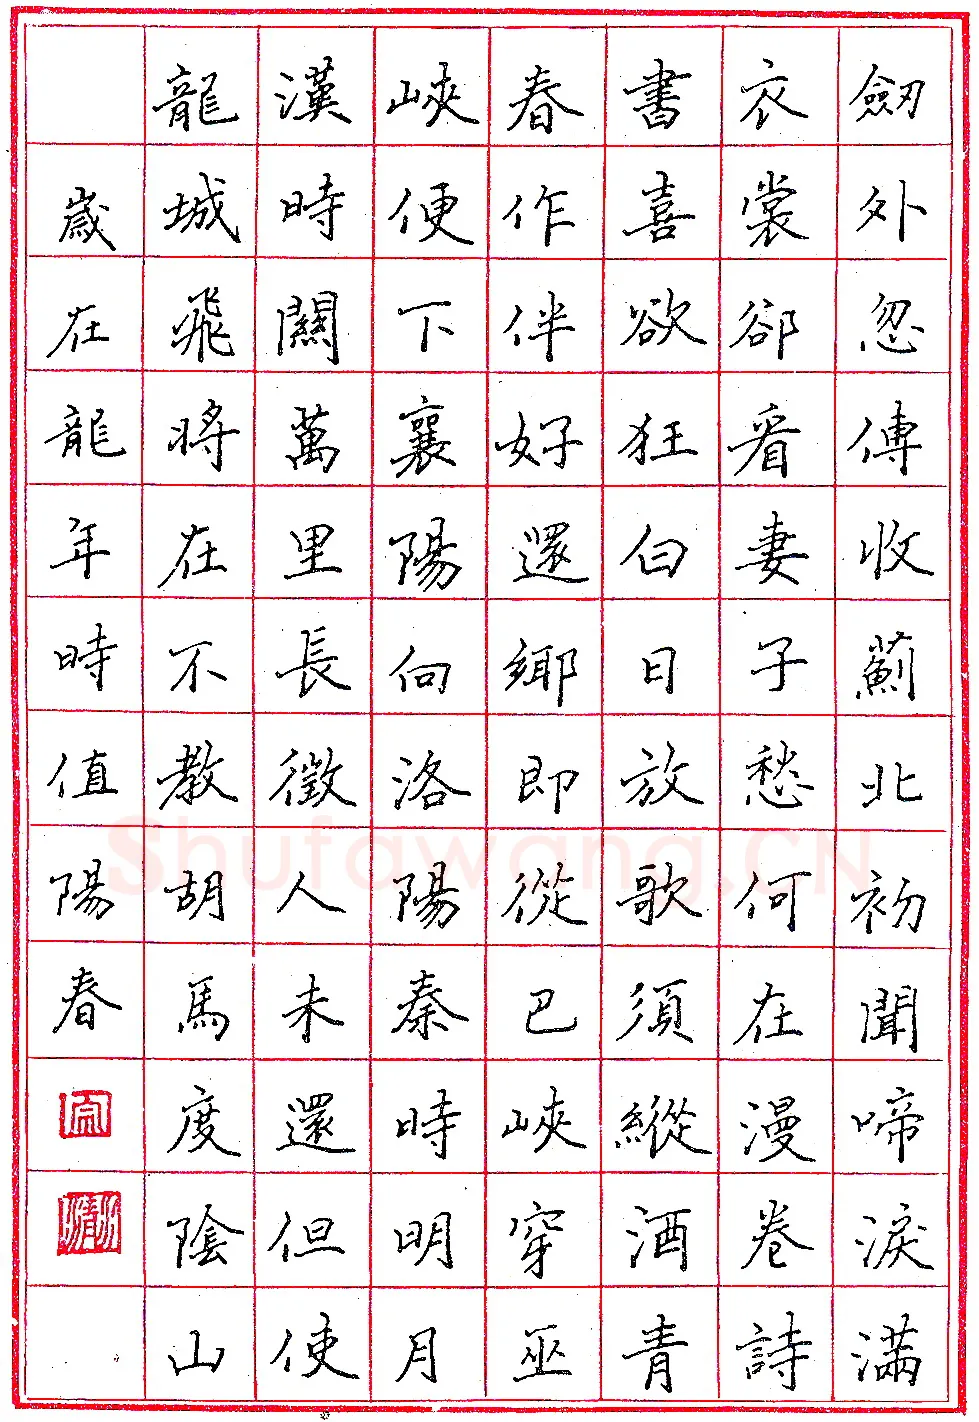 劒外忽傳收薊北初聞啼淚滿
衣裳卻看妻子愁何在漫卷詩
書喜欲狂白日放歌須縱酒青
春作伴好還鄉即從巴峽穿巫
峽便下襄陽向洛陽秦時明月
漢時關萬里長徵人未還但使
龍城飛將在不教胡馬度陰山
歲在龍年時值陽春
Shufawang.CN